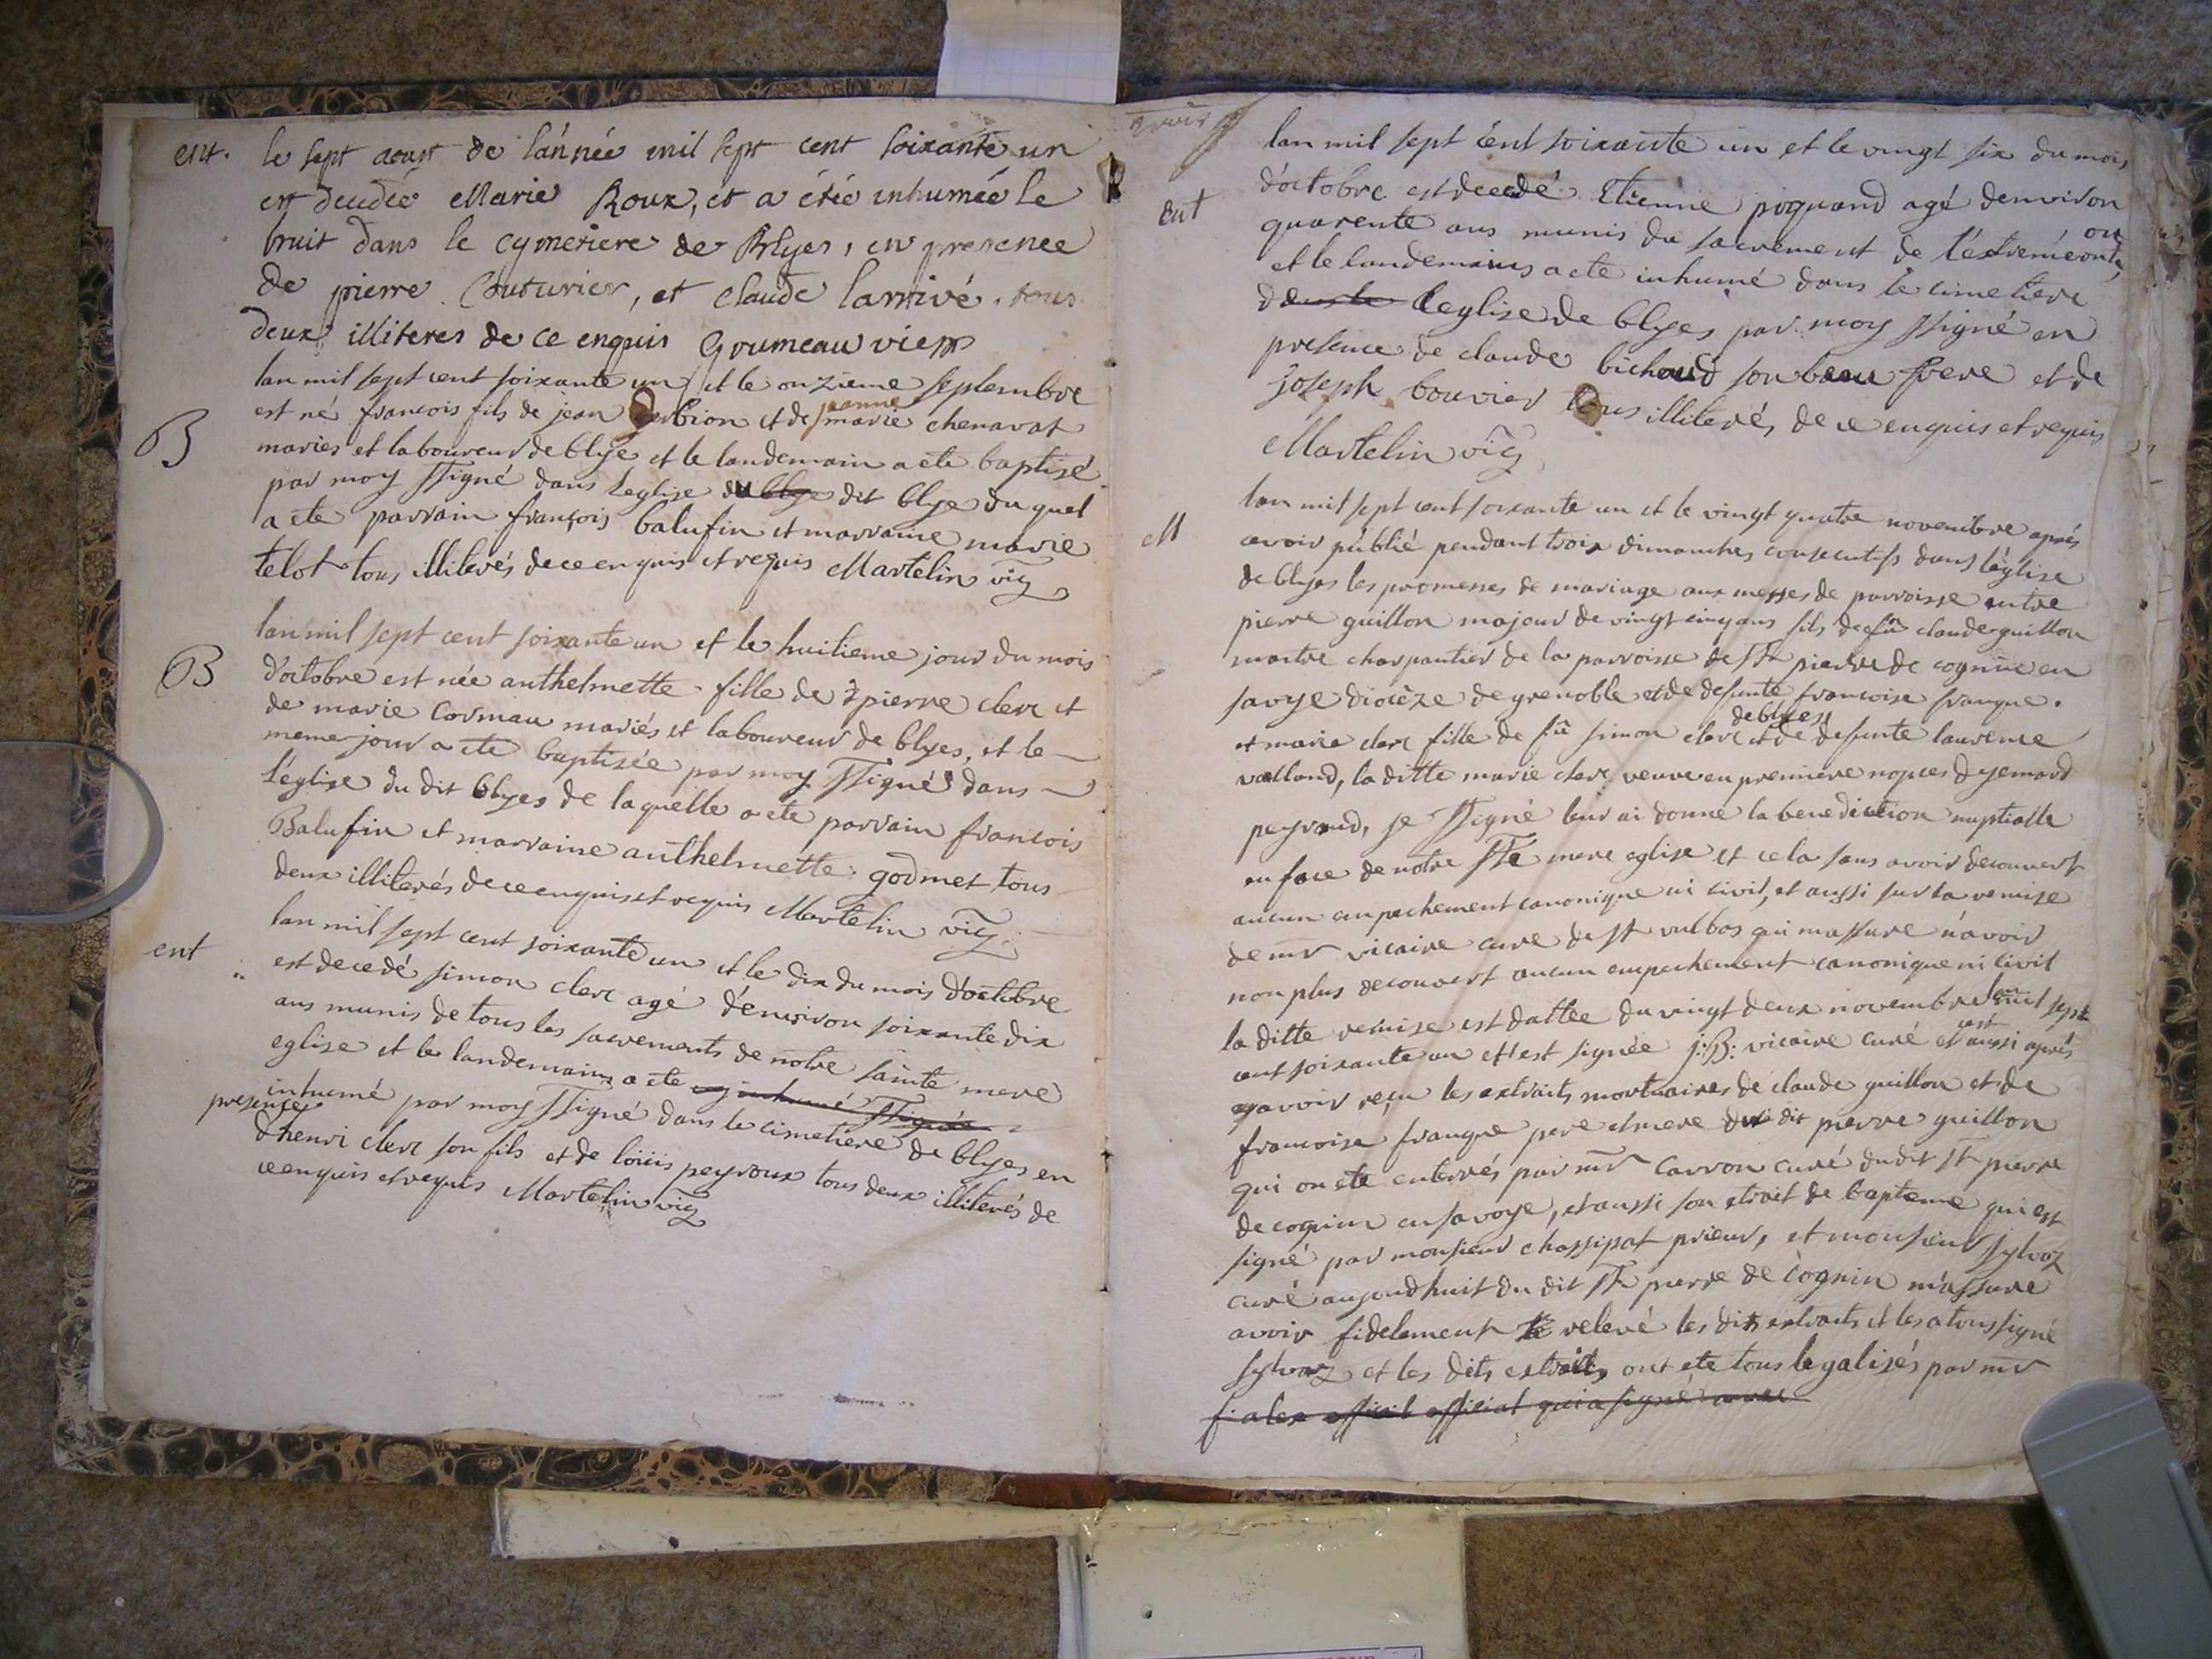 ent. le sept aoust de l'année mil sept cent soixante un
est decedée Marie Roux, et a étée inhumée le
huit dans le cymetiere de Blyes, en presence
de pierre Couturier, et claude larrivé. tous
deux illiteres de ce enquis Goumeau
B
lan mil sept cent soixante un et le onzieme septembre
est né francois fils de jean et de jeanne marie chenavat
mariés et laboureur de blye et le landemain a ete baptisé
par moy ssigné dans leglise du blye dit blye du quel
a ete parrain françois balufin et marraine marie
telot tous illiterés de ce enquis et requis Martelin vic
B
lan mil sept cent soixante un et le huitieme jour du mois
d'octobre est née anthelmette fille de pierre clerc et
de marie Cormau mariés et laboureur de blyes, et le
meme jour a ete baptisée par moy ssigné dans
l'église du dit blyes de laquelle a ete parrain francois
Balufin et marraine anthelmette godmet tous
deux illiterés de ce enquis et requis Martelin vic
ent
lan mil sept cent soixante un et le dix du mois d'octobre
est decedé simon clerc agé d'environ soixante dix
ans munis de tous les sacrements de notre sainte mere
eglise et le landemain a ete inhumé ssigné
inhumé par moy ssigné dans le cimetiere de blyes en
presence
d'henri clerc son fils et de loüis peyroux tous deux illiterés de
ce enquis et requis Martelin vic
lan mil sept cent soixante un et le vingt six du mois
ent
d'octobre est decedé Etienne poquand agé denviron
quarente ans munis du sacrement de l'extremeonti on
et le landemains a ete inhumé dans le cimetiere
dans le leglise de blyes par moy ssigné en
presence de claude bichoud son beau frere et de
joseph bouvier tous illiterés de ce enquis et requis
Martelin vic
M
lan mil sept cent soixante un et le vingt quatre novembre aprés
avoir publié pendant trois dimanches consecutifs dans léglise
de blyes les promesses de mariage aux messes de parroisse entre
pierre guillon majeur de vingt cinq ans fils de fû claude guillon
maitre charpantier de la parroisse de St pierre de cognin en
savoye diocèze de grenoble et de defunte francoise franque.
et marie clerc fille de fû simon clerc de blyes et de defunte laurence
valland, la ditte marie clerc veuve en premiere nopces dyemard
peyraud, je ssigné leur ai donné la benediction nuptialle
en face de notre Ste mere eglise et cela sans avoir decouvert
aucun empachement canonique ni civil, et aussi sur la remise
de mr vicaire cure de st vulbas qui massure n'avoir
non plus decouvert aucun empechement canonique ni civil
la ditte remise est dattée du vingt deux novembre lan mil sept
cent soixante un et est signée j:B: vicaire curé et cest aussi aprés
avoir reçu les extraits mortuaires de claude guillon et de
francoise franque pere et mere du dit pierre guillon
qui on ete enterrés par mr Carron curé du dit st pierre
de cognin en savoye, et aussi son etrait de bapteme qui est
signé par monsieur chassipat prieur, et monsieur sylvoz
curé aujourdhuit du dit St pierre de cògnin m'assure
avoir fidelement relevé les dits extraits et les a tous signé
sylvoz et les dits extraits ont ete tous legalisés par mr
fialex official qui a signé